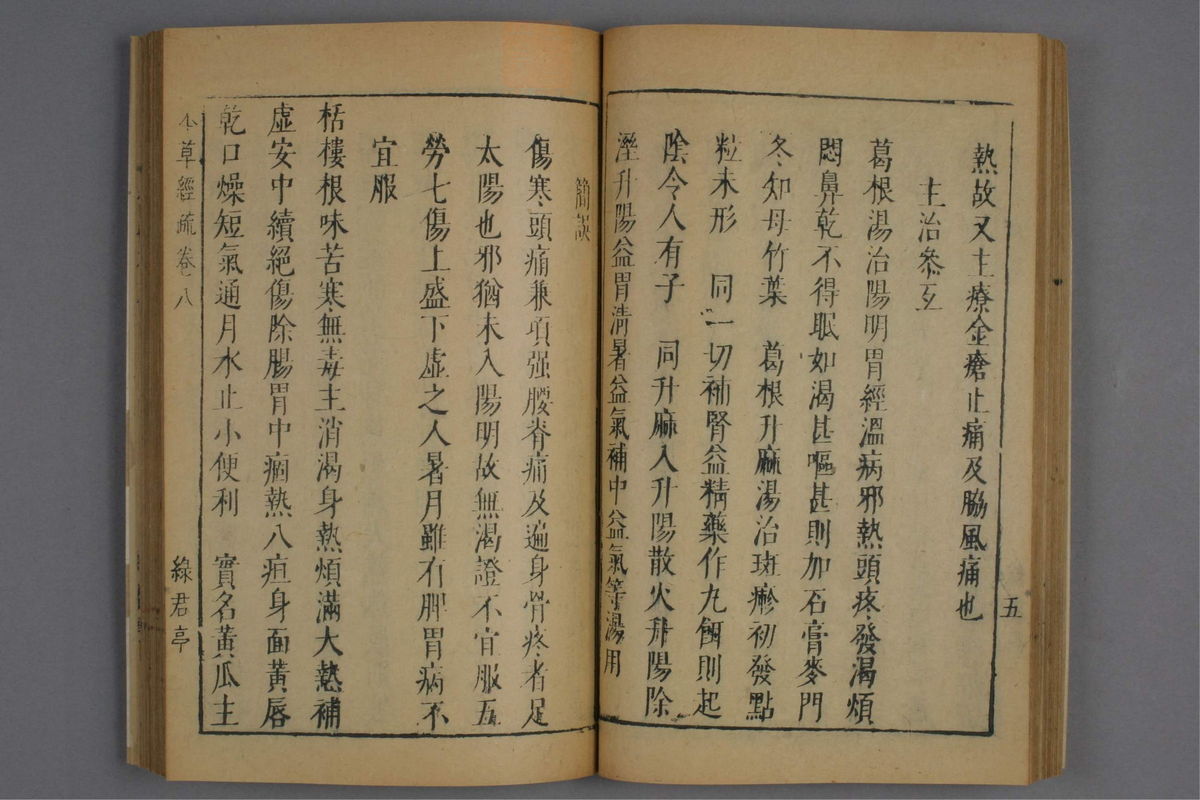 熱故又主療金瘡止痛及脇風痛也
主治參互
葛根湯治陽明胃經溫病邪熱頭疼發渴煩
悶鼻乾不得眠如渴甚嘔甚則加石膏麥門
冬知母竹葉　葛根升麻湯治斑瘮初發點
粒未形　同一切補腎益精藥作丸餌則起
陰令人有子　同升麻入升陽散火升陽除
溼升陽益胃清暑益氣補中益氣等湯用
五
簡誤
傷寒頭痛兼項强腰脊痛及遍身骨疼者足
太陽也邪猶未入陽明故無渴證不宜服五
勞七傷上盛下虛之人暑月雖有脾胃病不
宜服
栝樓根味苦寒無毒主消渴身熱煩滿大熱補
虛安中續絕傷除腸胃中痼熱八疸身面黃唇
乾口燥短氣通月水止小便利　實名黃瓜主
草經疏卷八
綠君亭